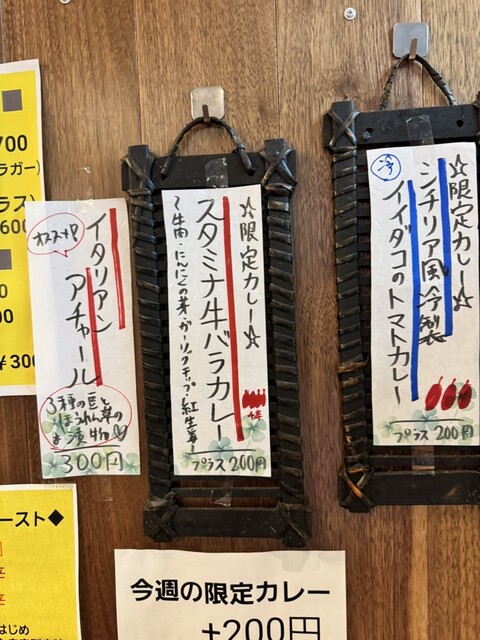 ☆限定カレー☆
シチリア風冷製
イイダコのトマトカレー
冷
プラス200円
☆限定カレー☆
スタミナ牛バラカレー
〜牛肉・にんにくの芽・ガーリックチップ・紅生姜〜
プラス200円
イタリアン
アチャール
オススメ!!
3種の豆と
ほうれん草の
お漬物♡
300円
今週の限定カレー
+200円
700
ラガー)
ラス)
600
00
¥300
ースト◆
はじめ